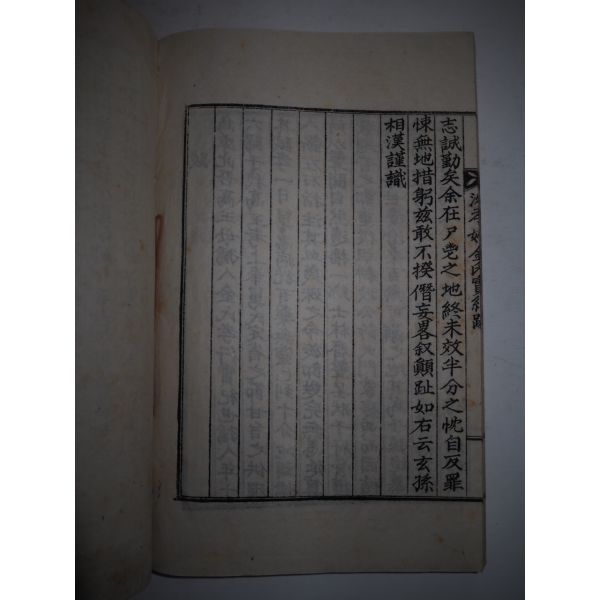 志誠勤矣余在尸甍之地終未效半分之忱自反罪
悚無地措躬玆敢不揆僭妄畧叙顚趾如右云玄孫
相漢謹識
孝婦金氏實紀跋